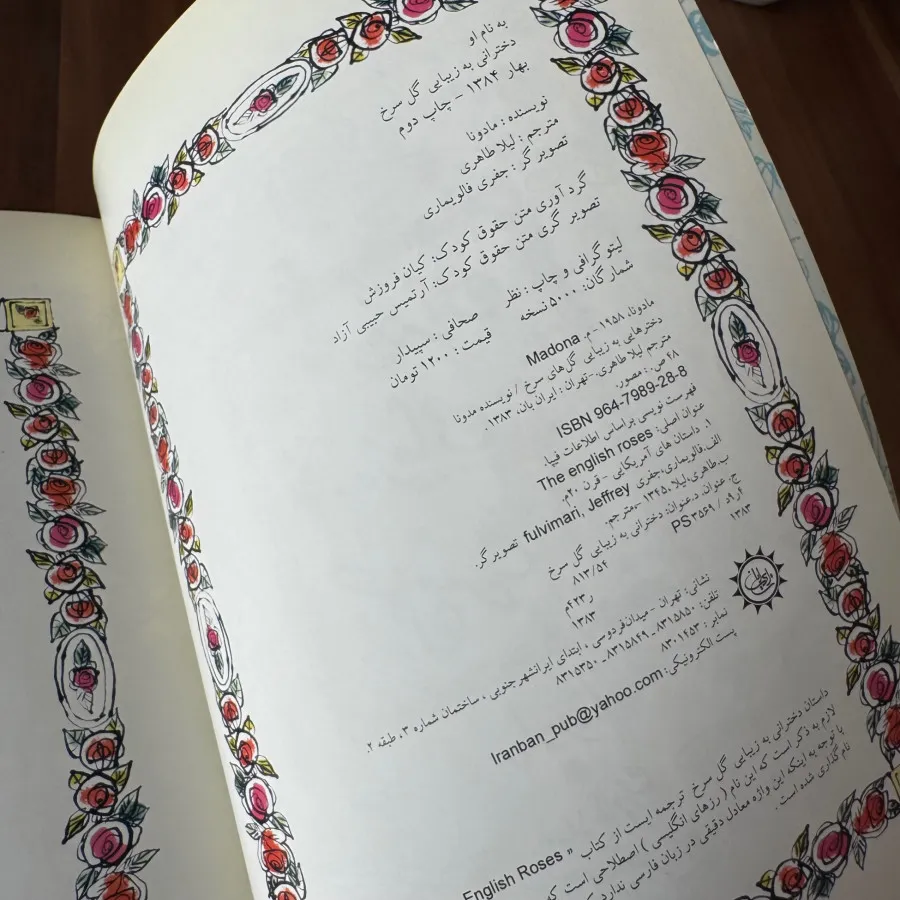 به نام او
دخترانی به زیبایی گل سرخ
بهار ۱۳۸۴ - چاپ دوم
نویسنده : مادونا
مترجم : لیلا طاهری
تصویر گر : جفری فالویماری
گرد آوری متن حقوق کودک: کیان فروزش
تصویر گری متن حقوق کودک: آرتمیس حبیبی آزاد
لیتو گرافی و چاپ : نظر صحافی : سپیدار
شمار گان: ۵۰۰۰ نسخه قیمت : ۱۲۰۰ تومان
مادونا، ۱۹۵۸ - م. Madona
دخترهایی به زیبایی گل‌های سرخ / نویسنده مدونا
مترجم لیلا طاهری.-تهران : ایران بان، ۱۳۸۳.
۴۸ ص.: مصور.
ISBN 964-7989-28-8
فهرست نویسی براساس اطلاعات فیپا.
عنوان اصلی: The english roses
۱. داستان های آمریکایی - قرن ۲۰م.
الف.فالویماری،جفری fulvimari, Jeffrey تصویر گر.
ب.طاهری،لیلا، ۱۳۴۵ -،مترجم.
ج. عنوان. د.عنوان: دخترانی به زیبایی گل سرخ
PS ۳۵۶۹ / ۸۱۳/۵۴
۱۳۸۳ ر۴۲۳م
۱۳۸۳
نشانی: تهران - میدان فردوسی ، ابتدای ایرانشهر جنوبی ، ساختمان شماره ۳، طبقه ۲.
تلفن: ۸۳۱۵۸۵۰ - ۸۳۱۵۸۴۹ - ۸۳۱۵۳۵۰
نمابر : ۸۳۰۱۴۵۳
پست الکترونیکی: Iranban_pub@yahoo.com
داستان دخترانی به زیبایی گل سرخ ترجمه ایست از کتاب « English Roses
لازم به ذکر است که این نام ( رزهای انگلیسی ) اصطلاحی است که
با توجه به اینکه این واژه معادل دقیقی در زبان فارسی ندارد
نام گذاری شده است.